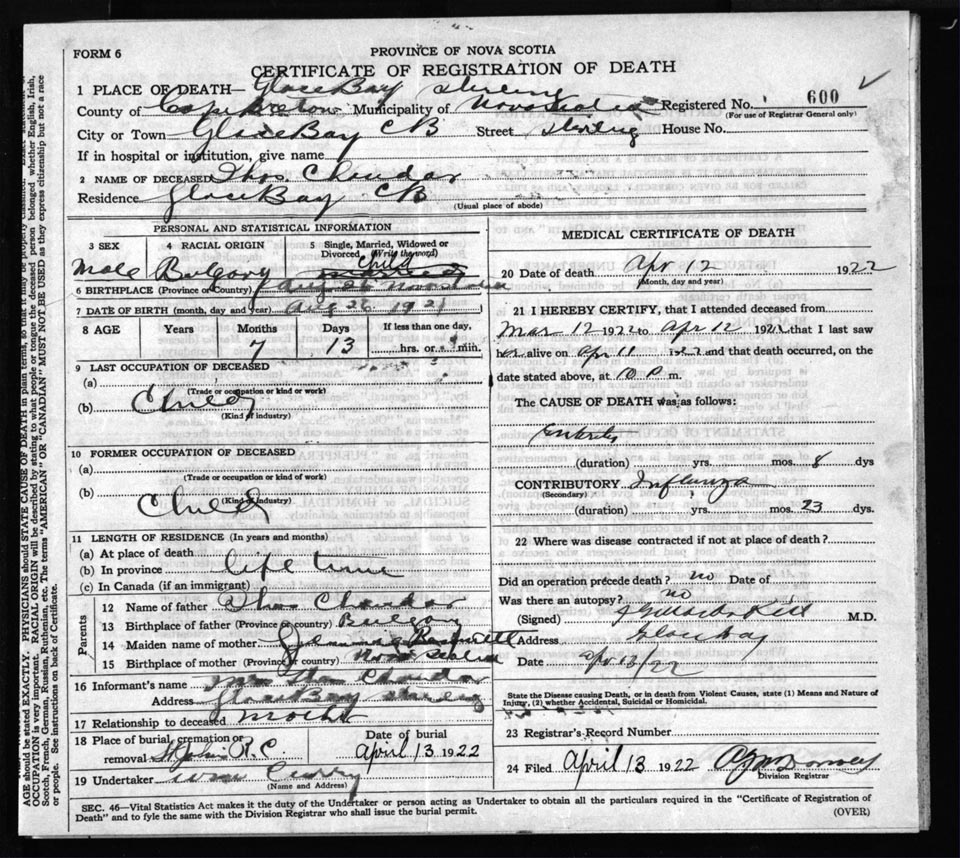 FORM 6
PROVINCE OF NOVA SCOTIA
CERTIFICATE OF REGISTRATION OF DEATH
1 PLACE OF DEATH— Glace Bay Sterling
County of Cape Breton Municipality of Nova Scotia Registered No. 600
(For use of Registrar General only)
City or Town Glace Bay CB Street Sterling House No.
If in hospital or institution, give name
2 NAME OF DECEASED Thos. Chandar
Residence Glace Bay CB
(Usual place of abode)
PERSONAL AND STATISTICAL INFORMATION
3 SEX 4 RACIAL ORIGIN 5 Single, Married, Widowed or Divorced (Write the word)
Male Bulgary Child
6 BIRTHPLACE (Province or Country)
7 DATE OF BIRTH (month, day and year) Aug 26 1921
8 AGE Years Months Days If less than one day,
7 13 hrs. or min.
9 LAST OCCUPATION OF DECEASED
(a)
(Trade or occupation or kind or work)
(b) Child
(Kind of industry)
10 FORMER OCCUPATION OF DECEASED
(a)
(Trade or occupation or kind of work)
(b) Child
(Kind of industry)
11 LENGTH OF RESIDENCE (In years and months)
(a) At place of death
(b) In province life time
(c) In Canada (if an immigrant)
Parents
12 Name of father Thos Chandar
13 Birthplace of father (Province or country) Bulgary
14 Maiden name of mother
15 Birthplace of mother (Province or country) Nova Scotia
16 Informant's name Mrs Thos Chandar
Address Glace Bay Sterling
17 Relationship to deceased Mother
18 Place of burial, cremation or removal St John R.C. Date of burial April 13 1922
19 Undertaker Wm Curry
(Name and Address)
MEDICAL CERTIFICATE OF DEATH
20 Date of death Apr 12 1922
(Month, day and year)
21 I HEREBY CERTIFY, that I attended deceased from
Mar 12 1922 to Apr 12 1922 that I last saw
alive on Apr 11 1922 and that death occurred, on the
date stated above, at 10 P m.
The CAUSE OF DEATH was as follows:
(duration) yrs. mos. 8 dys
CONTRIBUTORY Influenza
(Secondary)
(duration) yrs. mos. 23 dys.
22 Where was disease contracted if not at place of death?
Did an operation precede death? no Date of
Was there an autopsy? no
(Signed) M.D.
Address Glace Bay
Date Apr 13/22
State the Disease causing Death, or in death from Violent Causes, state (1) Means and Nature of
Injury, (2) whether Accidental, Suicidal or Homicidal.
23 Registrar's Record Number
24 Filed April 13 1922
Division Registrar
SEC. 46—Vital Statistics Act makes it the duty of the Undertaker or person acting as Undertaker to obtain all the particulars required in the "Certificate of Registration of
Death" and to fyle the same with the Division Registrar who shall issue the burial permit. (OVER)
AGE should be stated EXACTLY. PHYSICIANS should STATE CAUSE OF DEATH in plain terms, so that it may be properly classified.
OCCUPATION is very important. RACIAL ORIGIN will be described by stating to what people or tongue the deceased person belonged whether English, Irish,
Scotch, French, German, Russian, Ruthenian, etc. The terms "AMERICAN" OR "CANADIAN" MUST NOT BE USED as they express citizenship but not a race
or people. See instructions on back of Certificate.